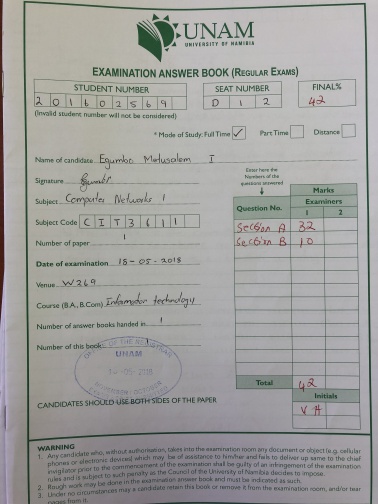 UNAM
UNIVERSITY OF NAMIBIA
EXAMINATION ANSWER BOOK (REGULAR EXAMS)
STUDENT NUMBER
201602569
(Invalid student number will not be considered)
SEAT NUMBER
D 1 2
FINAL%
42
* Mode of Study: Full Time ✓ Part Time Distance
Name of candidate Egumbo Matusalem I
Signature
Subject Computer Networks 1
Subject Code CIT3611
Number of paper 1
Date of examination 18-05-2018
Venue W269
Course (B.A., B.Com) Information technology
Number of answer books handed in 1
Number of this book
Enter here the
Numbers of the
questions answered
Marks
Question No. Examiners
1 2
Section A 32
Section B 10
Total 42
Initials
V H
OFFICE OF THE REGISTRAR
UNAM
-05-2018
CANDIDATES SHOULD USE BOTH SIDES OF THE PAPER
WARNING
1. Any candidate who, without authorisation, takes into the examination room any document or object (e.g. cellular
phones or electronic devices) which may be of assistance to him/her and fails to deliver up same to the chief
invigilator prior to the commencement of the examination shall be guilty of an infringement of the examination
rules and is subject to such penalty as the Council of the University of Namibia decides to impose.
2. Rough work may be done in the examination answer book and must be indicated as such.
3. Under no circumstances may a candidate retain this book or remove it from the examination room, and/or tear
pages from it.